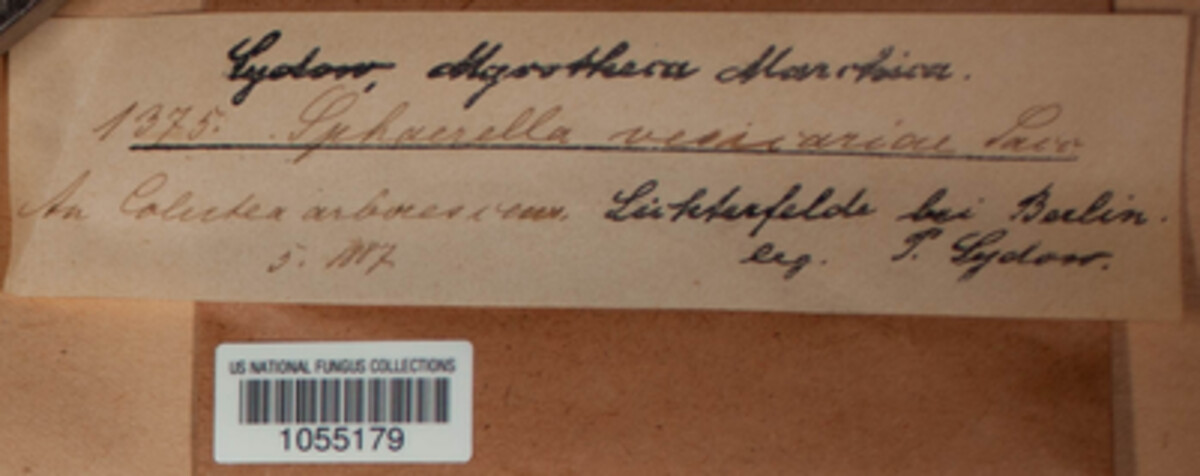 Sydow, Mycotheca Marchica.
1375. Sphaerella vesicariae Sacc
An Colutea arborescens.
Lichterfelde bei Berlin.
5. 1887
leg. P. Sydow.
US NATIONAL FUNGUS COLLECTIONS
1055179